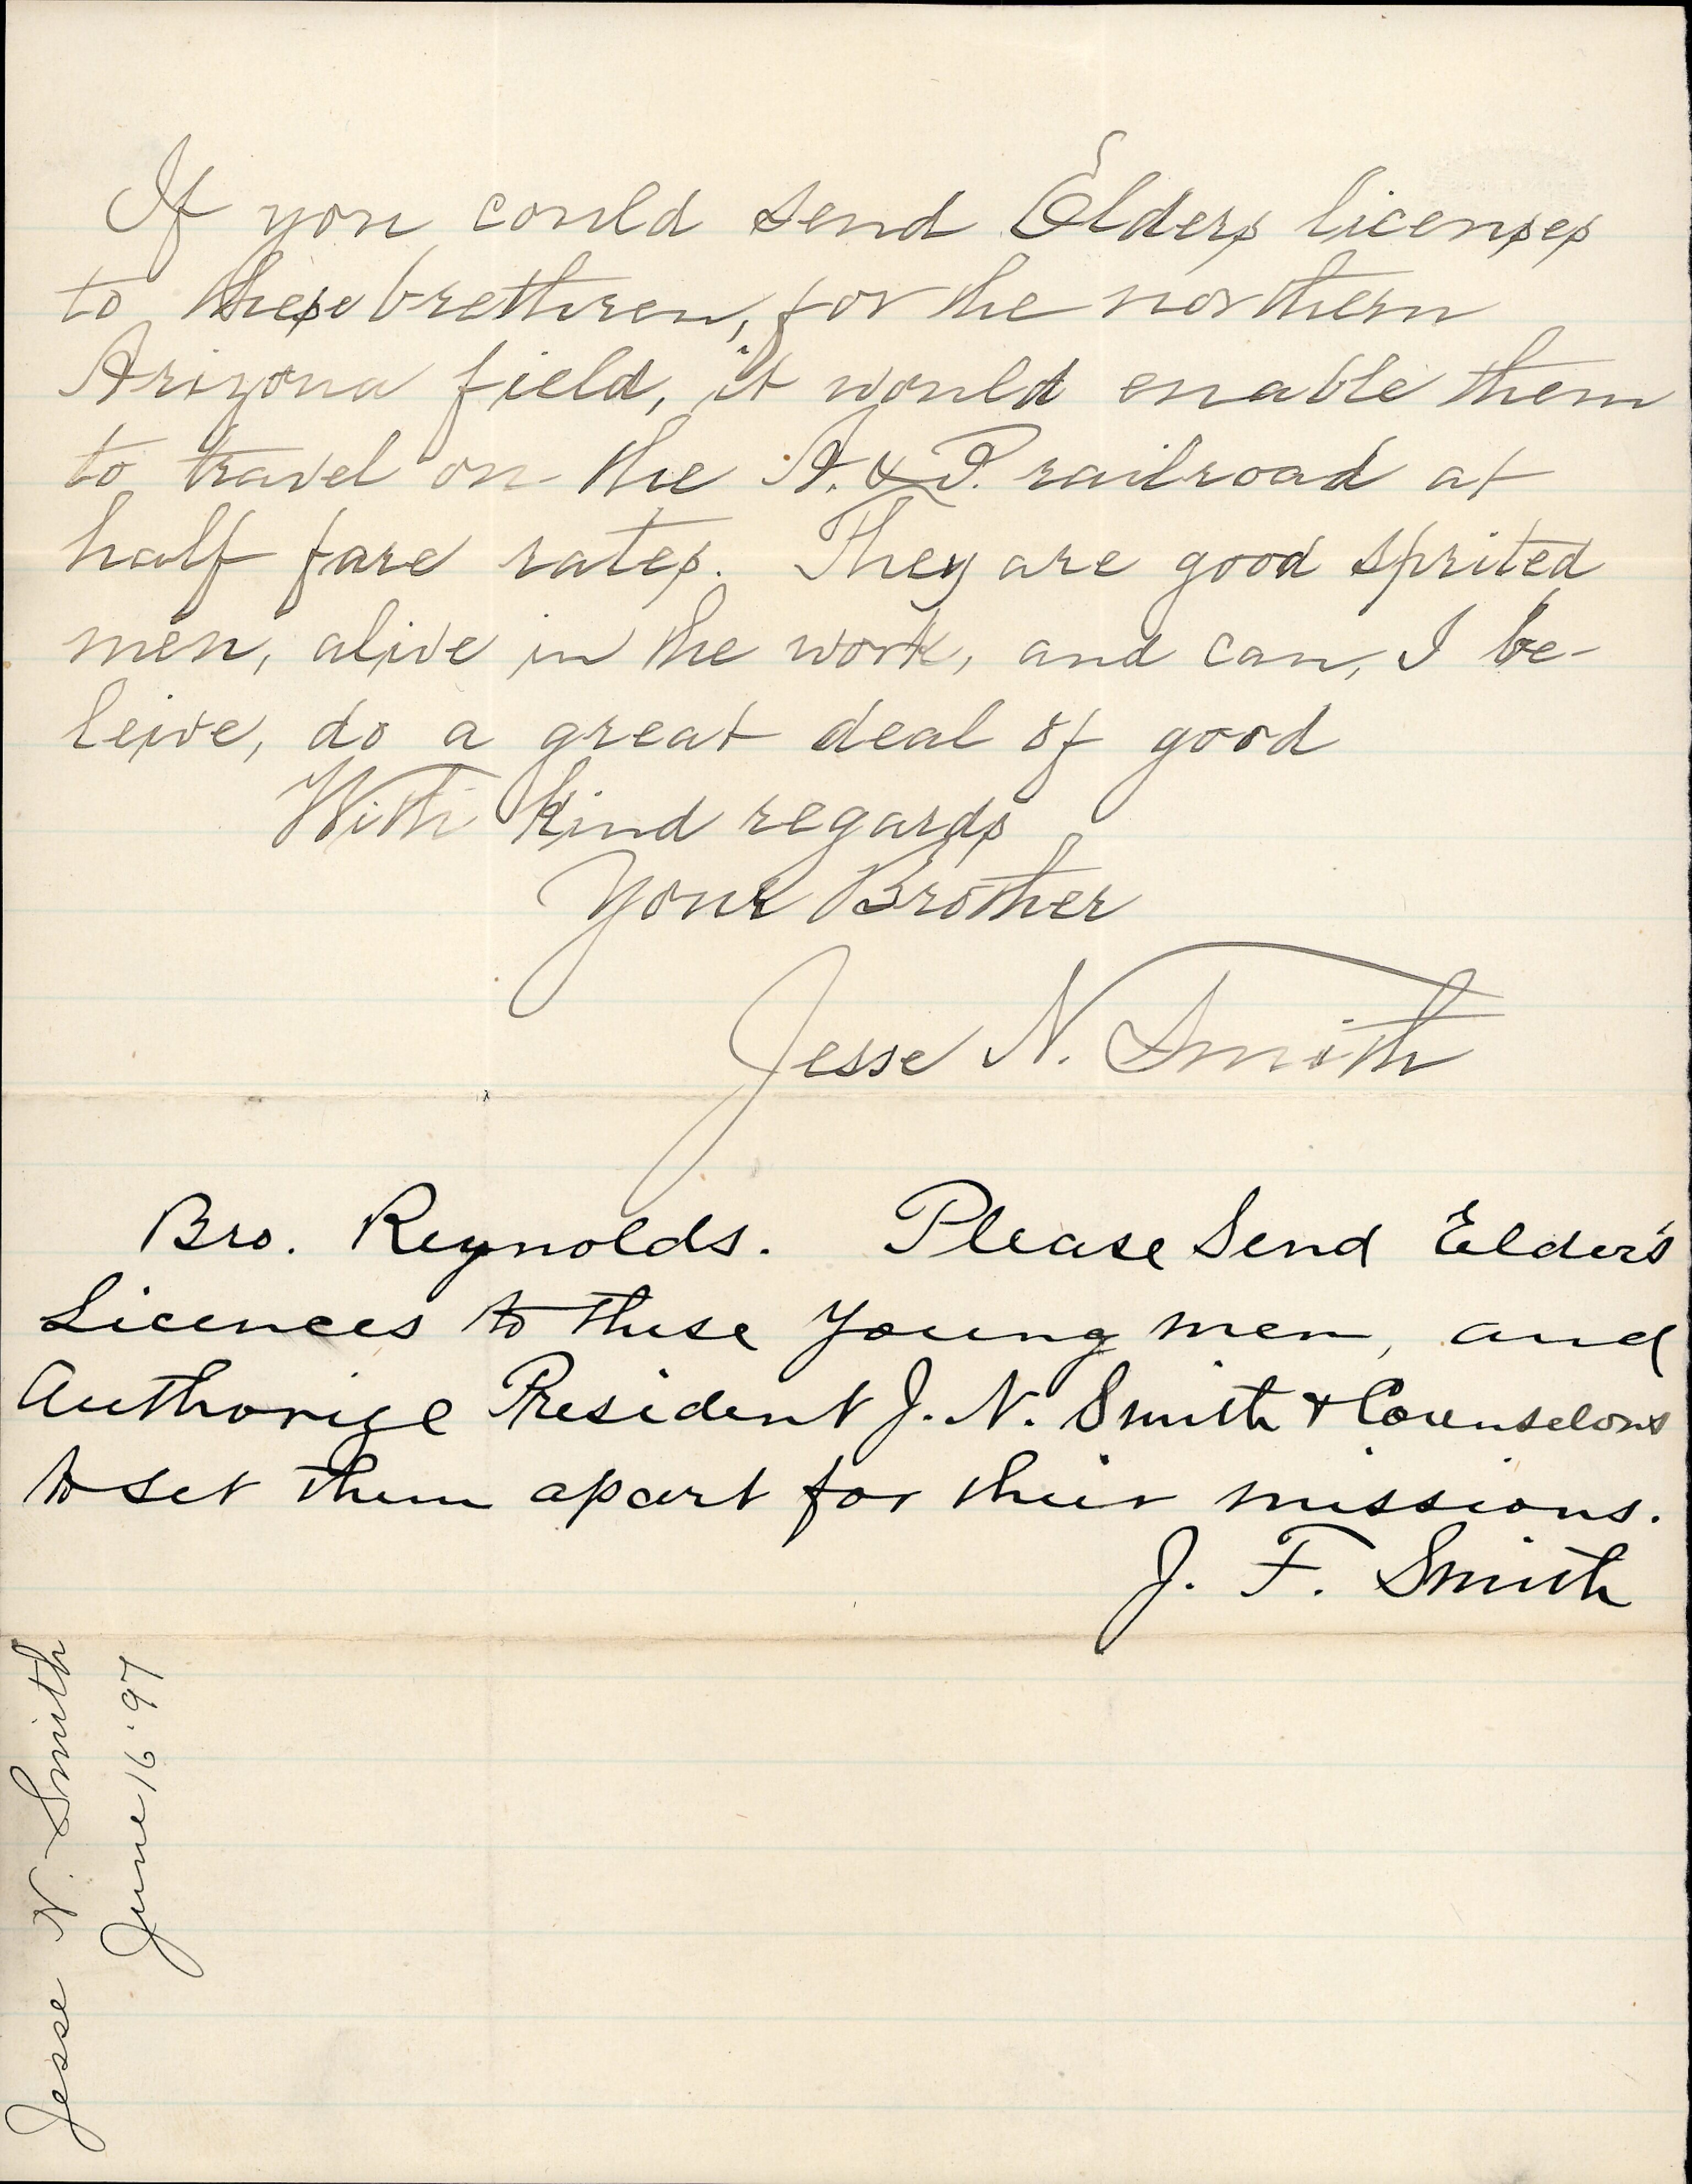 If you could send Elders licenses
to these brethren, for the northern
Arizona field, it would enable them
to travel on the A. & P. railroad at
half fare rates. They are good sprited
men, alive in the work, and can, I be-
leive, do a great deal of good
With kind regards
Your Brother
Jesse N. Smith
Bro. Reynolds. Please Send Elder's
Licences to these young men, and
Authorize President J. N. Smith & Counselors
to set them apart for their missions.
J. F. Smith
Jesse N. Smith
June 16 '97